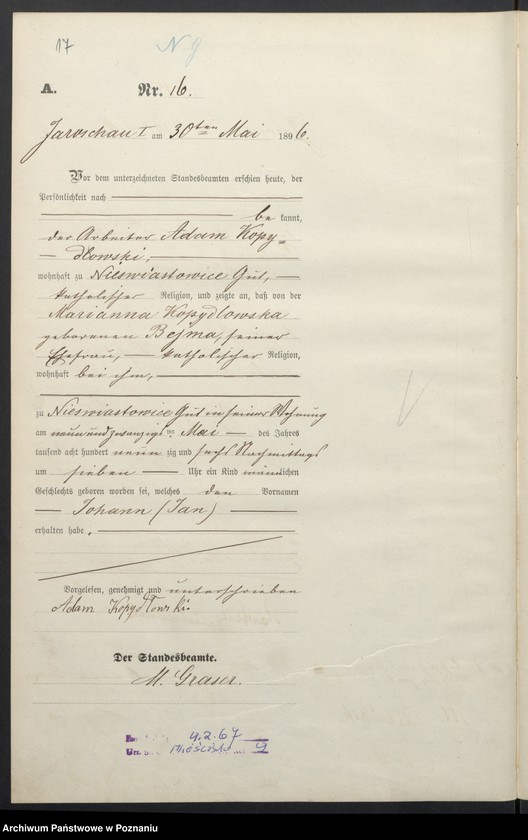 17
N 9
A. Nr. 16.
Jaroschau I am 30ten Mai 1896.
Vor dem unterzeichneten Standesbeamten erschien heute, der
Persönlichkeit nach
be kannt,
der Arbeiter Adam Kopy=
dłowski,
wohnhaft zu Nieswiastowice Gut,
katholischer Religion, und zeigte an, daß von der
Marianna Kopydlowska
geborenen Bejma, seiner
Ehefrau, katholischer Religion,
wohnhaft bei ihm,
zu Nieswiastowice Gut in seiner Wohnung
am neun und zwanzigsten Mai des Jahres
tausend acht hundert neun zig und sechs Nachmittags
um sieben Uhr ein Kind männlichen
Geschlechts geboren worden sei, welches den Vornamen
Johann (Jan)
erhalten habe.
Vorgelesen, genehmigt und unterschrieben
Adam Kopydłowski.
Der Standesbeamte.
M. Graser.
4.2.67
9
Archiwum Państwowe w Poznaniu